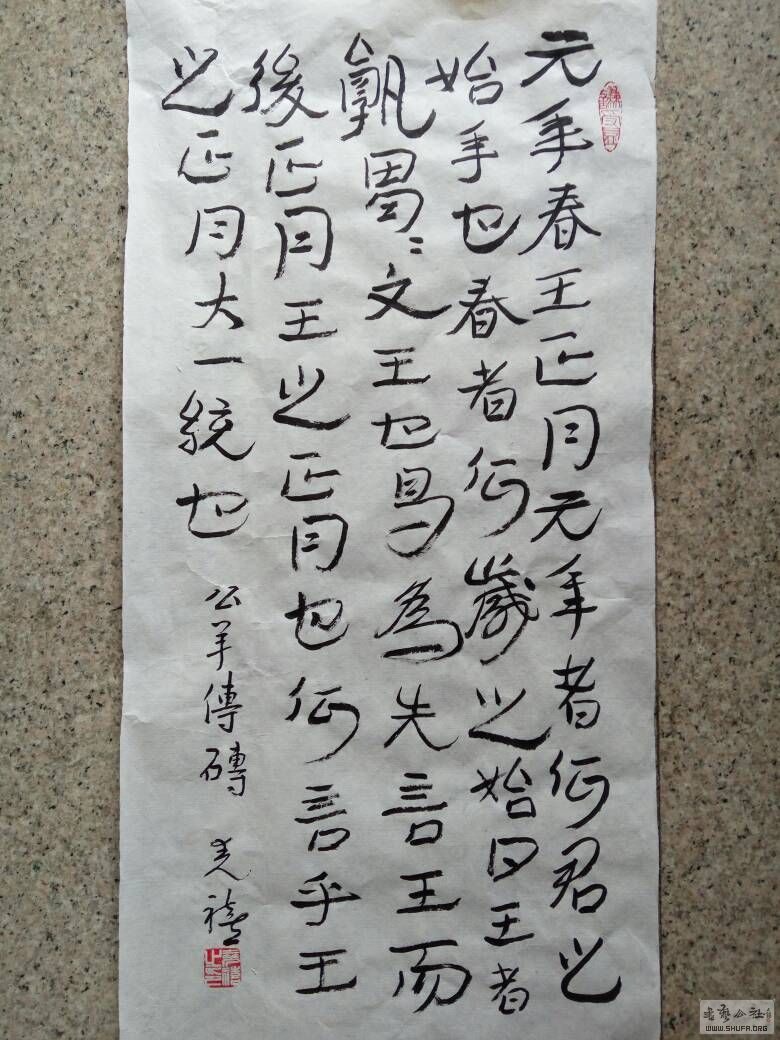 元年春王正月元年者何君之
始年也春者何歲之始曰王者
孰胃〻文王也曷為先言王而
後正月王之正月也何言乎王
之正月大一統也
公羊傳磚 禧
书艺公社
WWW.SHUFA.ORG